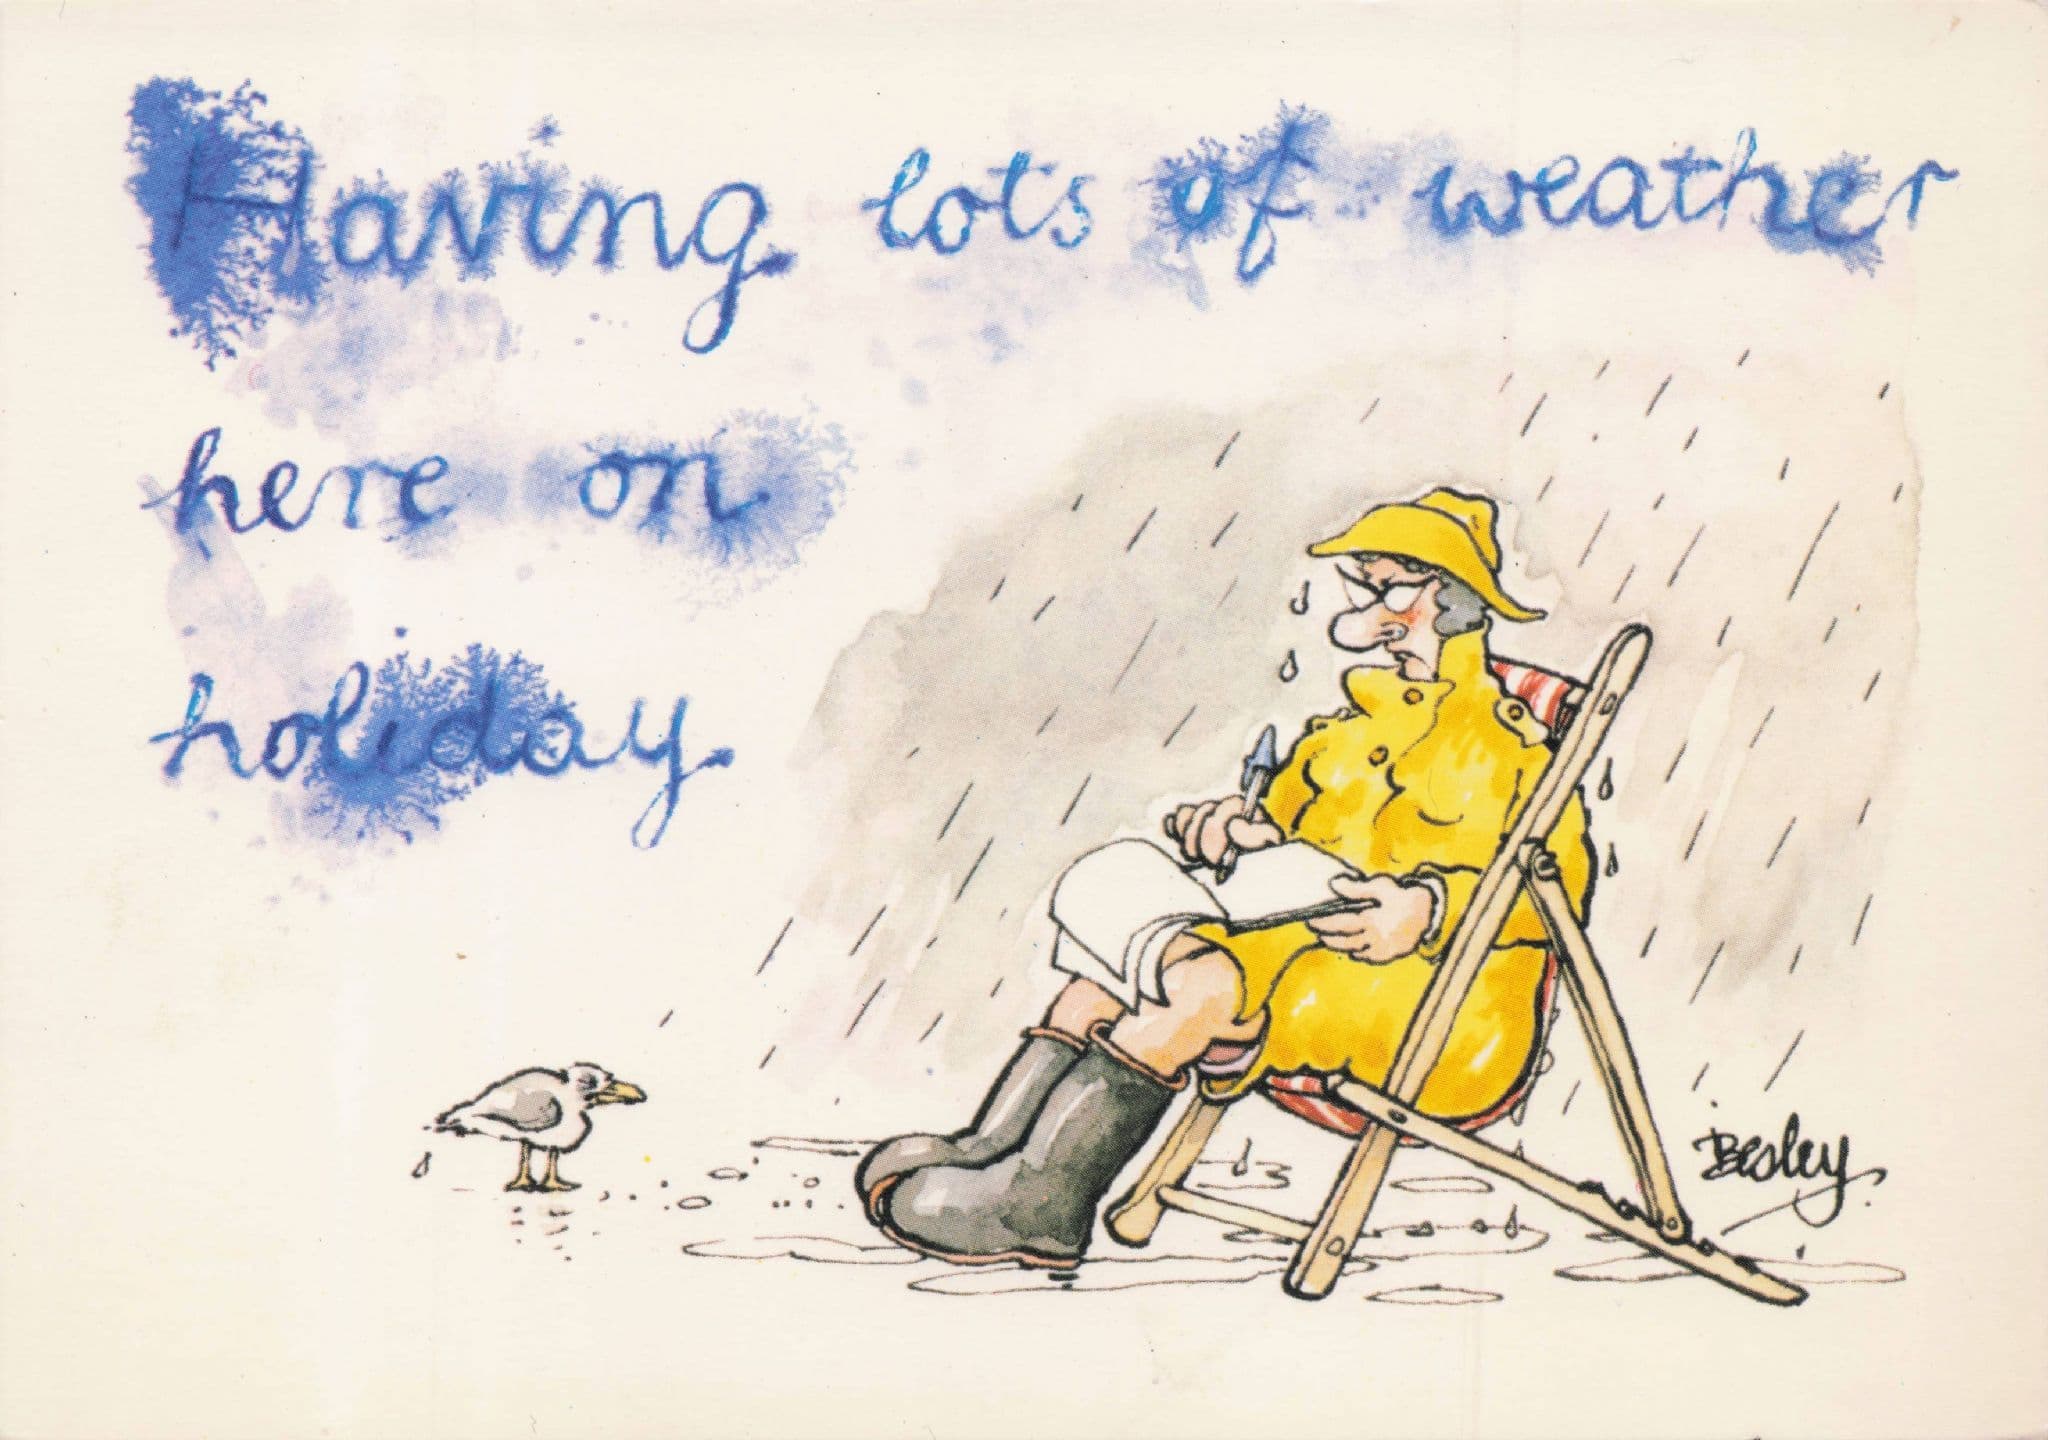 Having lots of weather
here on
holiday
Besley